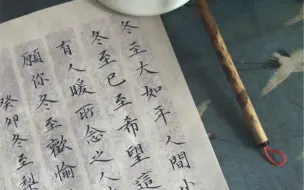 冬至大如年 人間小
冬至已至希望這
有人暖所念之人
願你冬至歡愉
癸卯冬至梨